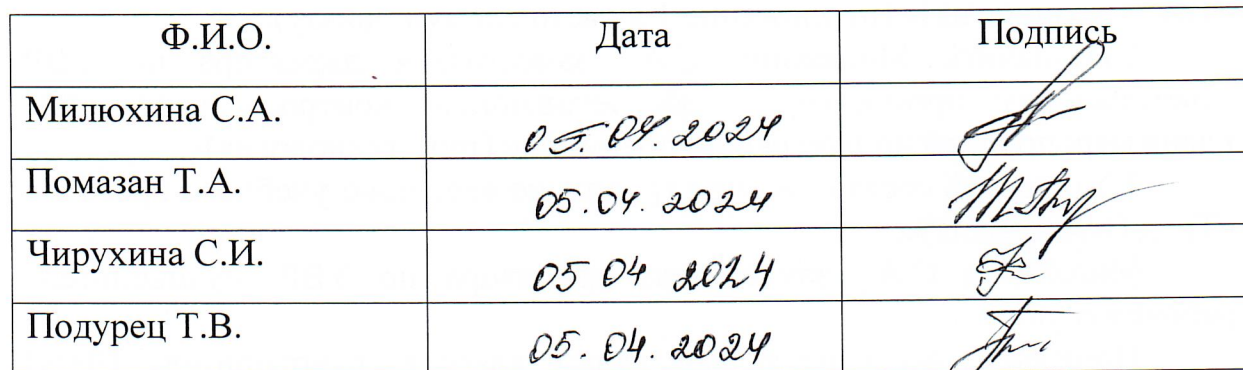 Ф.И.О. Дата Подпись
Милюхина С.А. 05.04.2024
Помазан Т.А. 05.04.2024
Чирухина С.И. 05 04 2024
Подурец Т.В. 05.04.2024